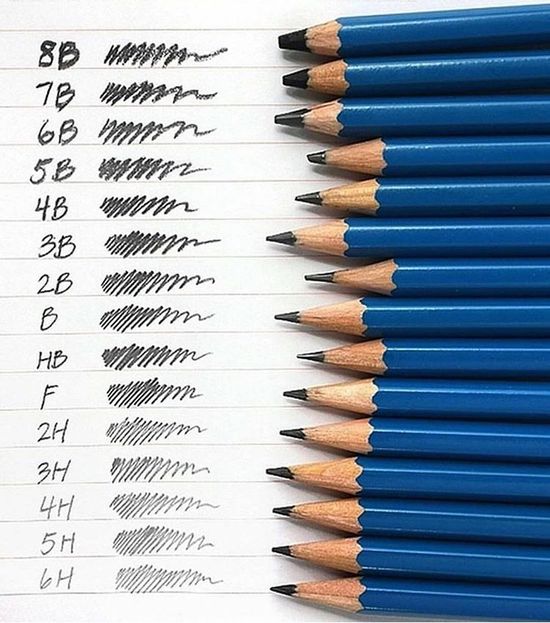 8B
7B
6B
5B
4B
3B
2B
B
HB
F
2H
3H
4H
5H
6H